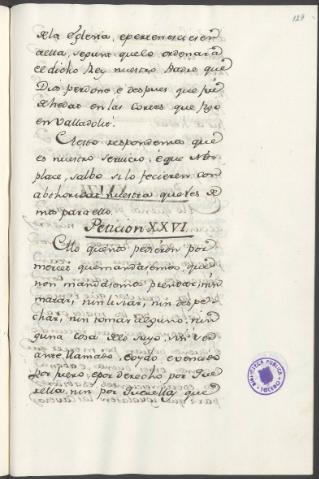 129
de la Eglesia, e perteneciacien
della, segunt que lo ordenara
el dicho Rey nuestro Padre que
Dios perdone, e despues que fue
de hedat en las cortes que fizo
en Valladolit.
A esto respondemos que
es nuestro servicio, e que Nos
place, salbo si lo fecieren con
abtoridat nuestra que les de
mos para ello.
Peticion XXVI.
Otro que nos pedieron por
merced que mandasemos que
non mandasemos prendar, nin
matar, nin lisiar, nin despe
char, nin tomar alguno, nin
guna cosa de lo suyo, sin ser
ante llamado, e oydo e vencido
por fuero, e por derecho por que
rella, nin por querella que
BIBLIOTECA PUBLICA
TOLEDO